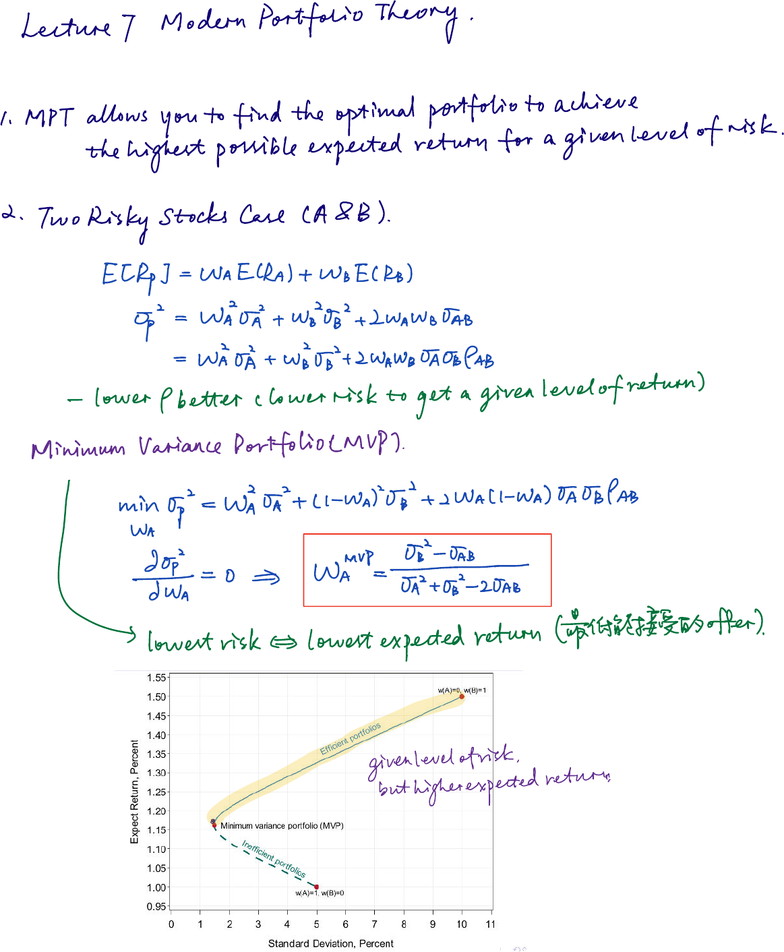 Lecture 7 Modern Portfolio Theory.
1. MPT allows you to find the optimal portfolio to achieve
the highest possible expected return for a given level of risk.
2. Two Risky Stocks Case (A & B).
E[Rₚ] = w_A E(R_A) + w_B E(R_B)
σₚ² = w_A² σ_A² + w_B² σ_B² + 2w_A w_B σ_AB
= w_A² σ_A² + w_B² σ_B² + 2w_A w_B σ_A σ_B ρ_AB
- lower ρ better (lower risk to get a given level of return)
Minimum Variance Portfolio (MVP).
min_{w_A} σₚ² = w_A² σ_A² + (1-w_A)² σ_B² + 2w_A(1-w_A) σ_A σ_B ρ_AB
∂σₚ²/∂w_A = 0 ⇒ w_A^MVP = (σ_B² - σ_AB)/(σ_A² + σ_B² - 2σ_AB)
lowest risk ⇔ lowest expected return (最低能接受的offer).
1.55
1.50
1.45
1.40
1.35
1.30
1.25
1.20
1.15
1.10
1.05
1.00
0.95
Expect Return, Percent
w(A)=0, w(B)=1
Efficient portfolios
given level of risk,
but higher expected return.
Minimum variance portfolio (MVP)
Inefficient portfolios
w(A)=1, w(B)=0
0 1 2 3 4 5 6 7 8 9 10 11
Standard Deviation, Percent